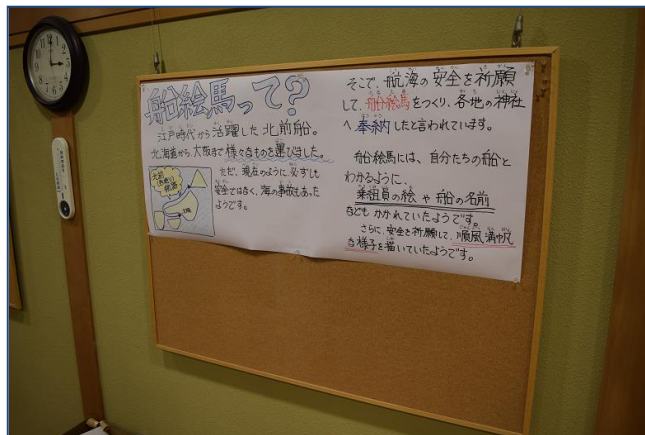 船絵馬って?
江戸時代から活躍した北前船。
北海道から、大阪まで様々なものを運びました。
ただ、現在のように、必ずしも
安全ではなく、海の事故もあった
ようです。
そこで、航海の安全を祈願
して、船絵馬をつくり、各地の神社
へ奉納したと言われています。
船絵馬には、自分たちの船と
わかるように、
乗組員の絵や船の名前
などもかかれていたようです。
さらに、安全を祈願して、順風満帆
な様子を描いていたようです。